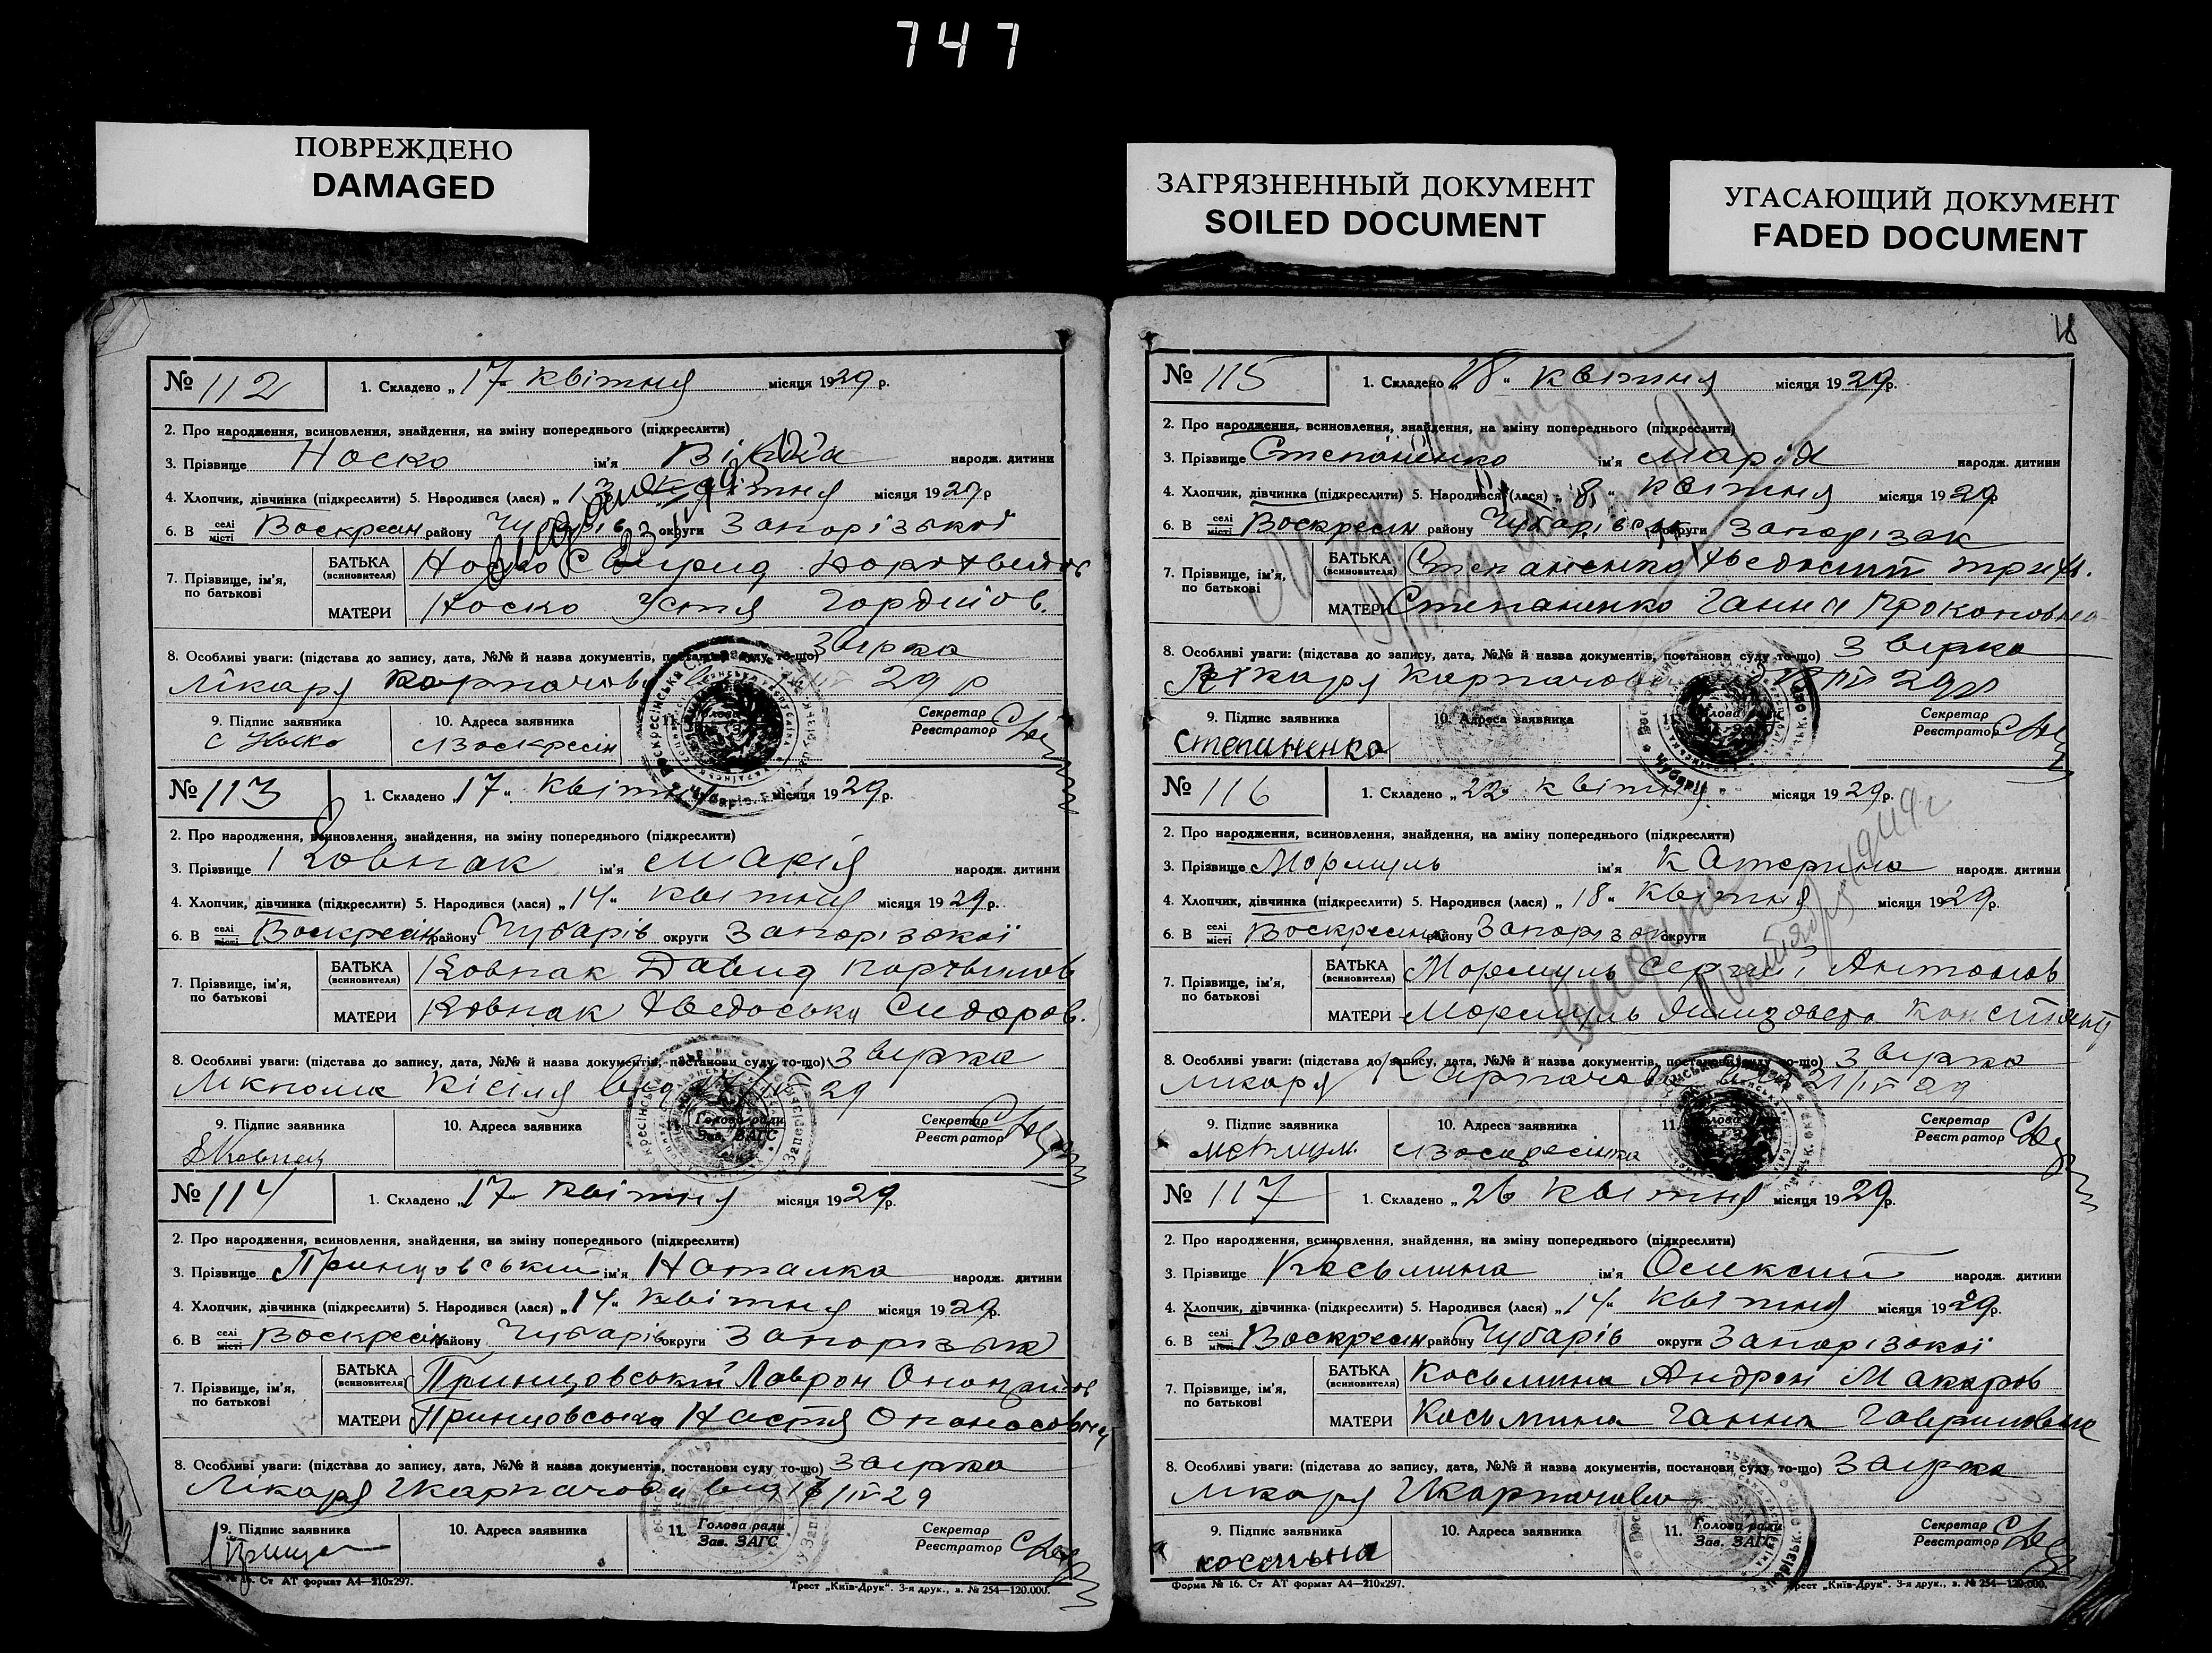 747
ПОВРЕЖДЕНО
DAMAGED
ЗАГРЯЗНЕННЫЙ ДОКУМЕНТ
SOILED DOCUMENT
УГАСАЮЩИЙ ДОКУМЕНТ
FADED DOCUMENT
№ 112
1. Складено „17" квітня місяця 1929 р.
2. Про народження, всиновлення, знайдення, на зміну попереднього (підкреслити)
3. Прізвище Носко ім'я народж. дитини
4. Хлопчик, дівчинка (підкреслити) 5. Народився (лася) „13 квітня місяця 1929 р
6. В селі місті Воскресін району Чубарів округи Запорізької
7. Прізвище, ім'я, по батькові
БАТЬКА (всиновителя) Носко Свирид
МАТЕРИ Носко Устя Гордійов.
8. Особливі уваги: (підстава до запису, дата, №№ й назва документів, постанови суду то-що) Звірка
Лікаря Карпачова 29 р
9. Підпис заявника С Носко
10. Адреса заявника с Воскресін
11.
Секретар
Реєстратор
№ 113
1. Складено „17" квітня місяця 1929 р.
2. Про народження, всиновлення, знайдення, на зміну попереднього (підкреслити)
3. Прізвище Ковпак ім'я Марія народж. дитини
4. Хлопчик, дівчинка (підкреслити) 5. Народився (лася) „14" квітня місяця 1929 р.
6. В селі місті Воскресін району Чубарів округи Запорізької
7. Прізвище, ім'я, по батькові
БАТЬКА (всиновителя) Ковпак Давид
МАТЕРИ Ковпак Хведоська Сидоров.
8. Особливі уваги: (підстава до запису, дата, №№ й назва документів, постанови суду то-що) Звірка
29
9. Підпис заявника
10. Адреса заявника
11. Голова ради
Зав. ЗАГС
Секретар
Реєстратор
№ 114
1. Складено „17" квітня місяця 1929 р.
2. Про народження, всиновлення, знайдення, на зміну попереднього (підкреслити)
3. Прізвище Принцовський ім'я Наталка народж. дитини
4. Хлопчик, дівчинка (підкреслити) 5. Народився (лася) „14" квітня місяця 1929 р.
6. В селі місті Воскресін району Чубарів округи Запорізька
7. Прізвище, ім'я, по батькові
БАТЬКА (всиновителя) Принцовський Лаврон
МАТЕРИ Принцовська Настя Опанасовна
8. Особливі уваги: (підстава до запису, дата, №№ й назва документів, постанови суду то-що) Звірка
Лікаря Карпачова від IV 29
9. Підпис заявника
10. Адреса заявника
11. Голова ради
Зав. ЗАГС
Секретар
Реєстратор
№ 16. Ст АТ формат А4—210х297.
Трест „Київ-Друк". 3-я друк., з. № 254—120.000.
18
№ 115
1. Складено „18" квітня місяця 1929 р.
2. Про народження, всиновлення, знайдення, на зміну попереднього (підкреслити)
3. Прізвище Степаненко ім'я Марія народж. дитини
4. Хлопчик, дівчинка (підкреслити) 5. Народився (лася) „ квітня місяця 1929 р
6. В селі місті Воскресін району Чубарівськ округи Запорізак
7. Прізвище, ім'я, по батькові
БАТЬКА (всиновителя) Степаненко
МАТЕРИ Степаненко Ганна Прокоповна
8. Особливі уваги: (підстава до запису, дата, №№ й назва документів, постанови суду то-що) Звірка
Лікаря Карпачова IV 29р
9. Підпис заявника Степаненко
10. Адреса заявника
11.
Секретар
Реєстратор
№ 116
1. Складено „22" квітня місяця 1929 р.
2. Про народження, всиновлення, знайдення, на зміну попереднього (підкреслити)
3. Прізвище Мормуль ім'я Катерина народж. дитини
4. Хлопчик, дівчинка (підкреслити) 5. Народився (лася) „18" квітня місяця 1929 р.
6. В селі місті Воскресінка району Запорізак округи
7. Прізвище, ім'я, по батькові
БАТЬКА (всиновителя) Мормуль Сергій Антонов
МАТЕРИ Мормуль
8. Особливі уваги: (підстава до запису, дата, №№ й назва документів, постанови суду то-що) Звірка
Лікаря Карпачова від 21/IV 29
9. Підпис заявника
10. Адреса заявника с Воскресінка
11.
Секретар
Реєстратор
№ 117
1. Складено „26 квітня місяця 1929 р.
2. Про народження, всиновлення, знайдення, на зміну попереднього (підкреслити)
3. Прізвище Косьмина ім'я Олексий народж. дитини
4. Хлопчик, дівчинка (підкреслити) 5. Народився (лася) „14" квітня місяця 1929 р.
6. В селі місті Воскресін району Чубарів округи Запорізької
7. Прізвище, ім'я, по батькові
БАТЬКА (всиновителя) Косьмина Андрон Макаров
МАТЕРИ Косьмина Ганна Гавриловна
8. Особливі уваги: (підстава до запису, дата, №№ й назва документів, постанови суду то-що) Звірка
Лікаря Карпачова
9. Підпис заявника косьмына
10. Адреса заявника
11. Голова ради
Зав. ЗАГС
Секретар
Реєстратор
Форма № 16. Ст АТ формат А4—210х297.
Трест „Київ-Друк". 3-я друк., з. № 254—120.000.